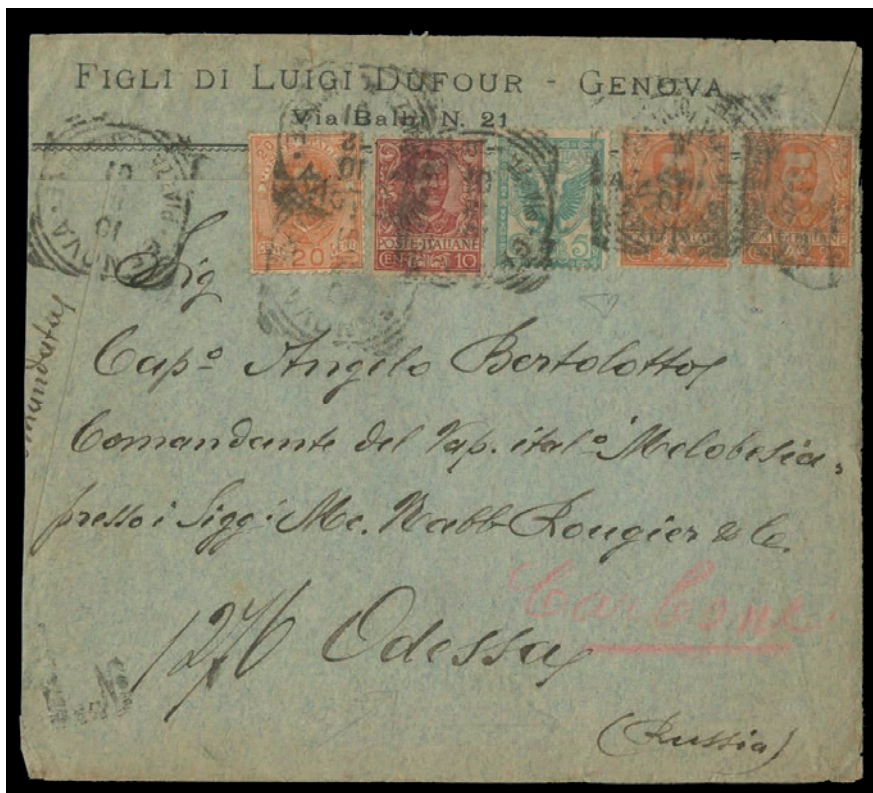 FIGLI DI LUIGI DUFOUR - GENOVA
Via Balbi N. 21
20 20
CENT 20
POSTE ITALIANE
CEN 10
5
POSTE ITALIANE
Sig
Cap.º Angelo Bertolotto
Comandante del Vap. ital.º Melobesia
presso i Sigg. Mc. Nabb Rougier & Co.
Carbone
1276 Odessa
(Russia)